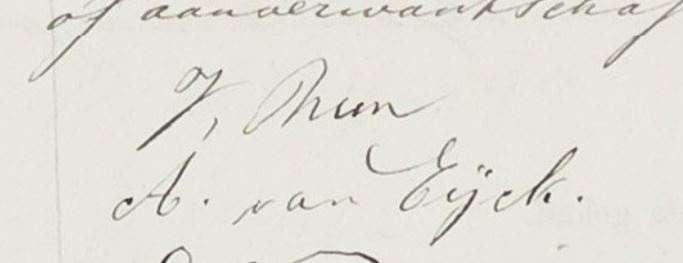 of aanverwantschap
J. Thun
A. van Eÿck.